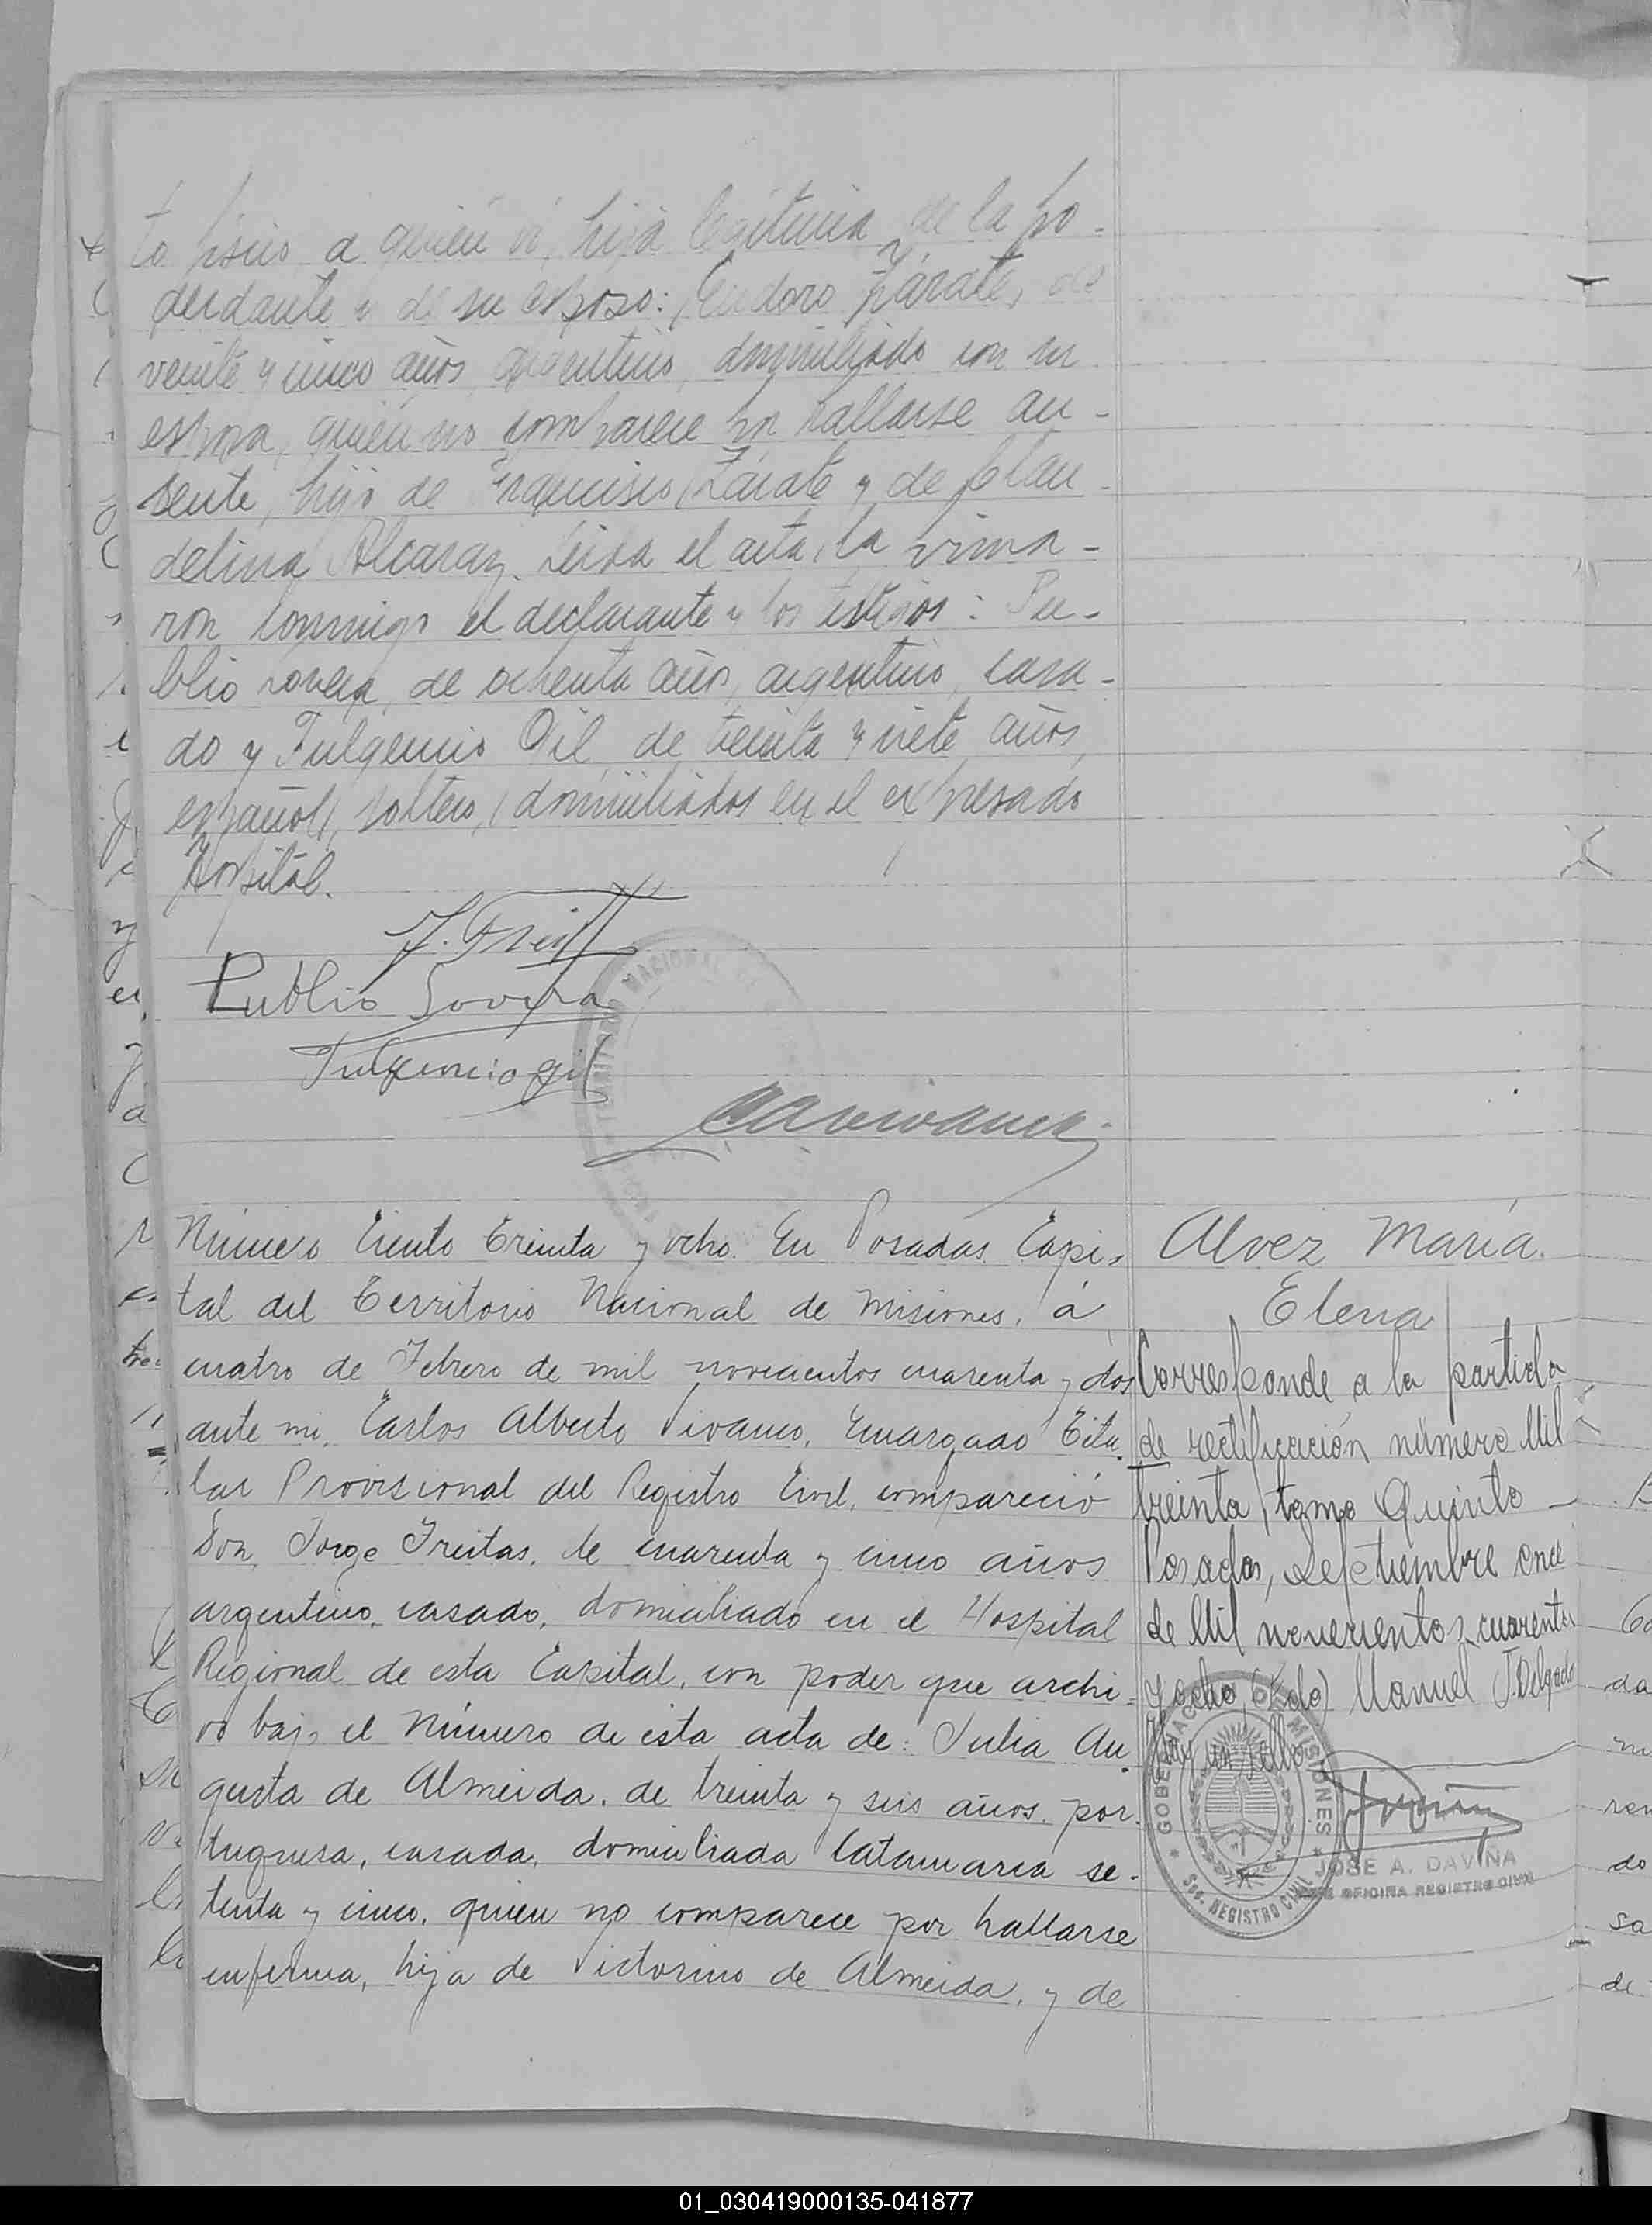 to físico a quien ví, hija legitima de la po-
derdante y de su esposo: Eudoro Zárate, de
veinte y cinco años, argentino, domiciliado con su
esposa, quién no comparece por hallarse au-
sente, hijo de Francisco Zárate y de Clau-
delina Alcaraz. Leida el acta, la firma-
ron conmigo el declarante y los testigos: Pu-
blio Sovera, de ochenta años, argentino, casa-
do y Fulgencio Gil, de treinta y siete años,
español, soltero, domiciliados en el expresado
Hospital.
Publio Sovera
Fulgencio Gil
Número Ciento treinta y ocho. En Posadas Capi-
tal del Territorio Nacional de Misiones, á
cuatro de Febrero de mil novecientos cuarenta y dos
ante mi, Carlos Alberto Vivanco, Encargado Titu-
lar Provisional del Registro Civil, compareció
Don Jorge Freitas, de cuarenta y cinco años
argentino, casado, domiciliado en el Hospital
Regional de esta Capital, con poder que archi-
vo bajo el Número de esta acta de: Julia Au-
gusta de Almeida, de treinta y seis años, por-
tuguesa, casada, domiciliada Catamarca se-
tenta y cinco, quien no comparece por hallarse
enferma, hija de Victorino de Almeida, y de
Alvez María
Elena
Corresponde a la partida
de rectificación número Mil
treinta, tomo Quinto
Posadas, Septiembre once
de Mil novecientos cuarenta
y ocho (Fdo) Manuel J. Delgado
Hay un sello
GOBERNACION DE MISIONES
REGISTRO CIVIL
JOSE A. DAVIÑA
JEFE OFICINA REGISTRO CIVIL
01_030419000135-041877